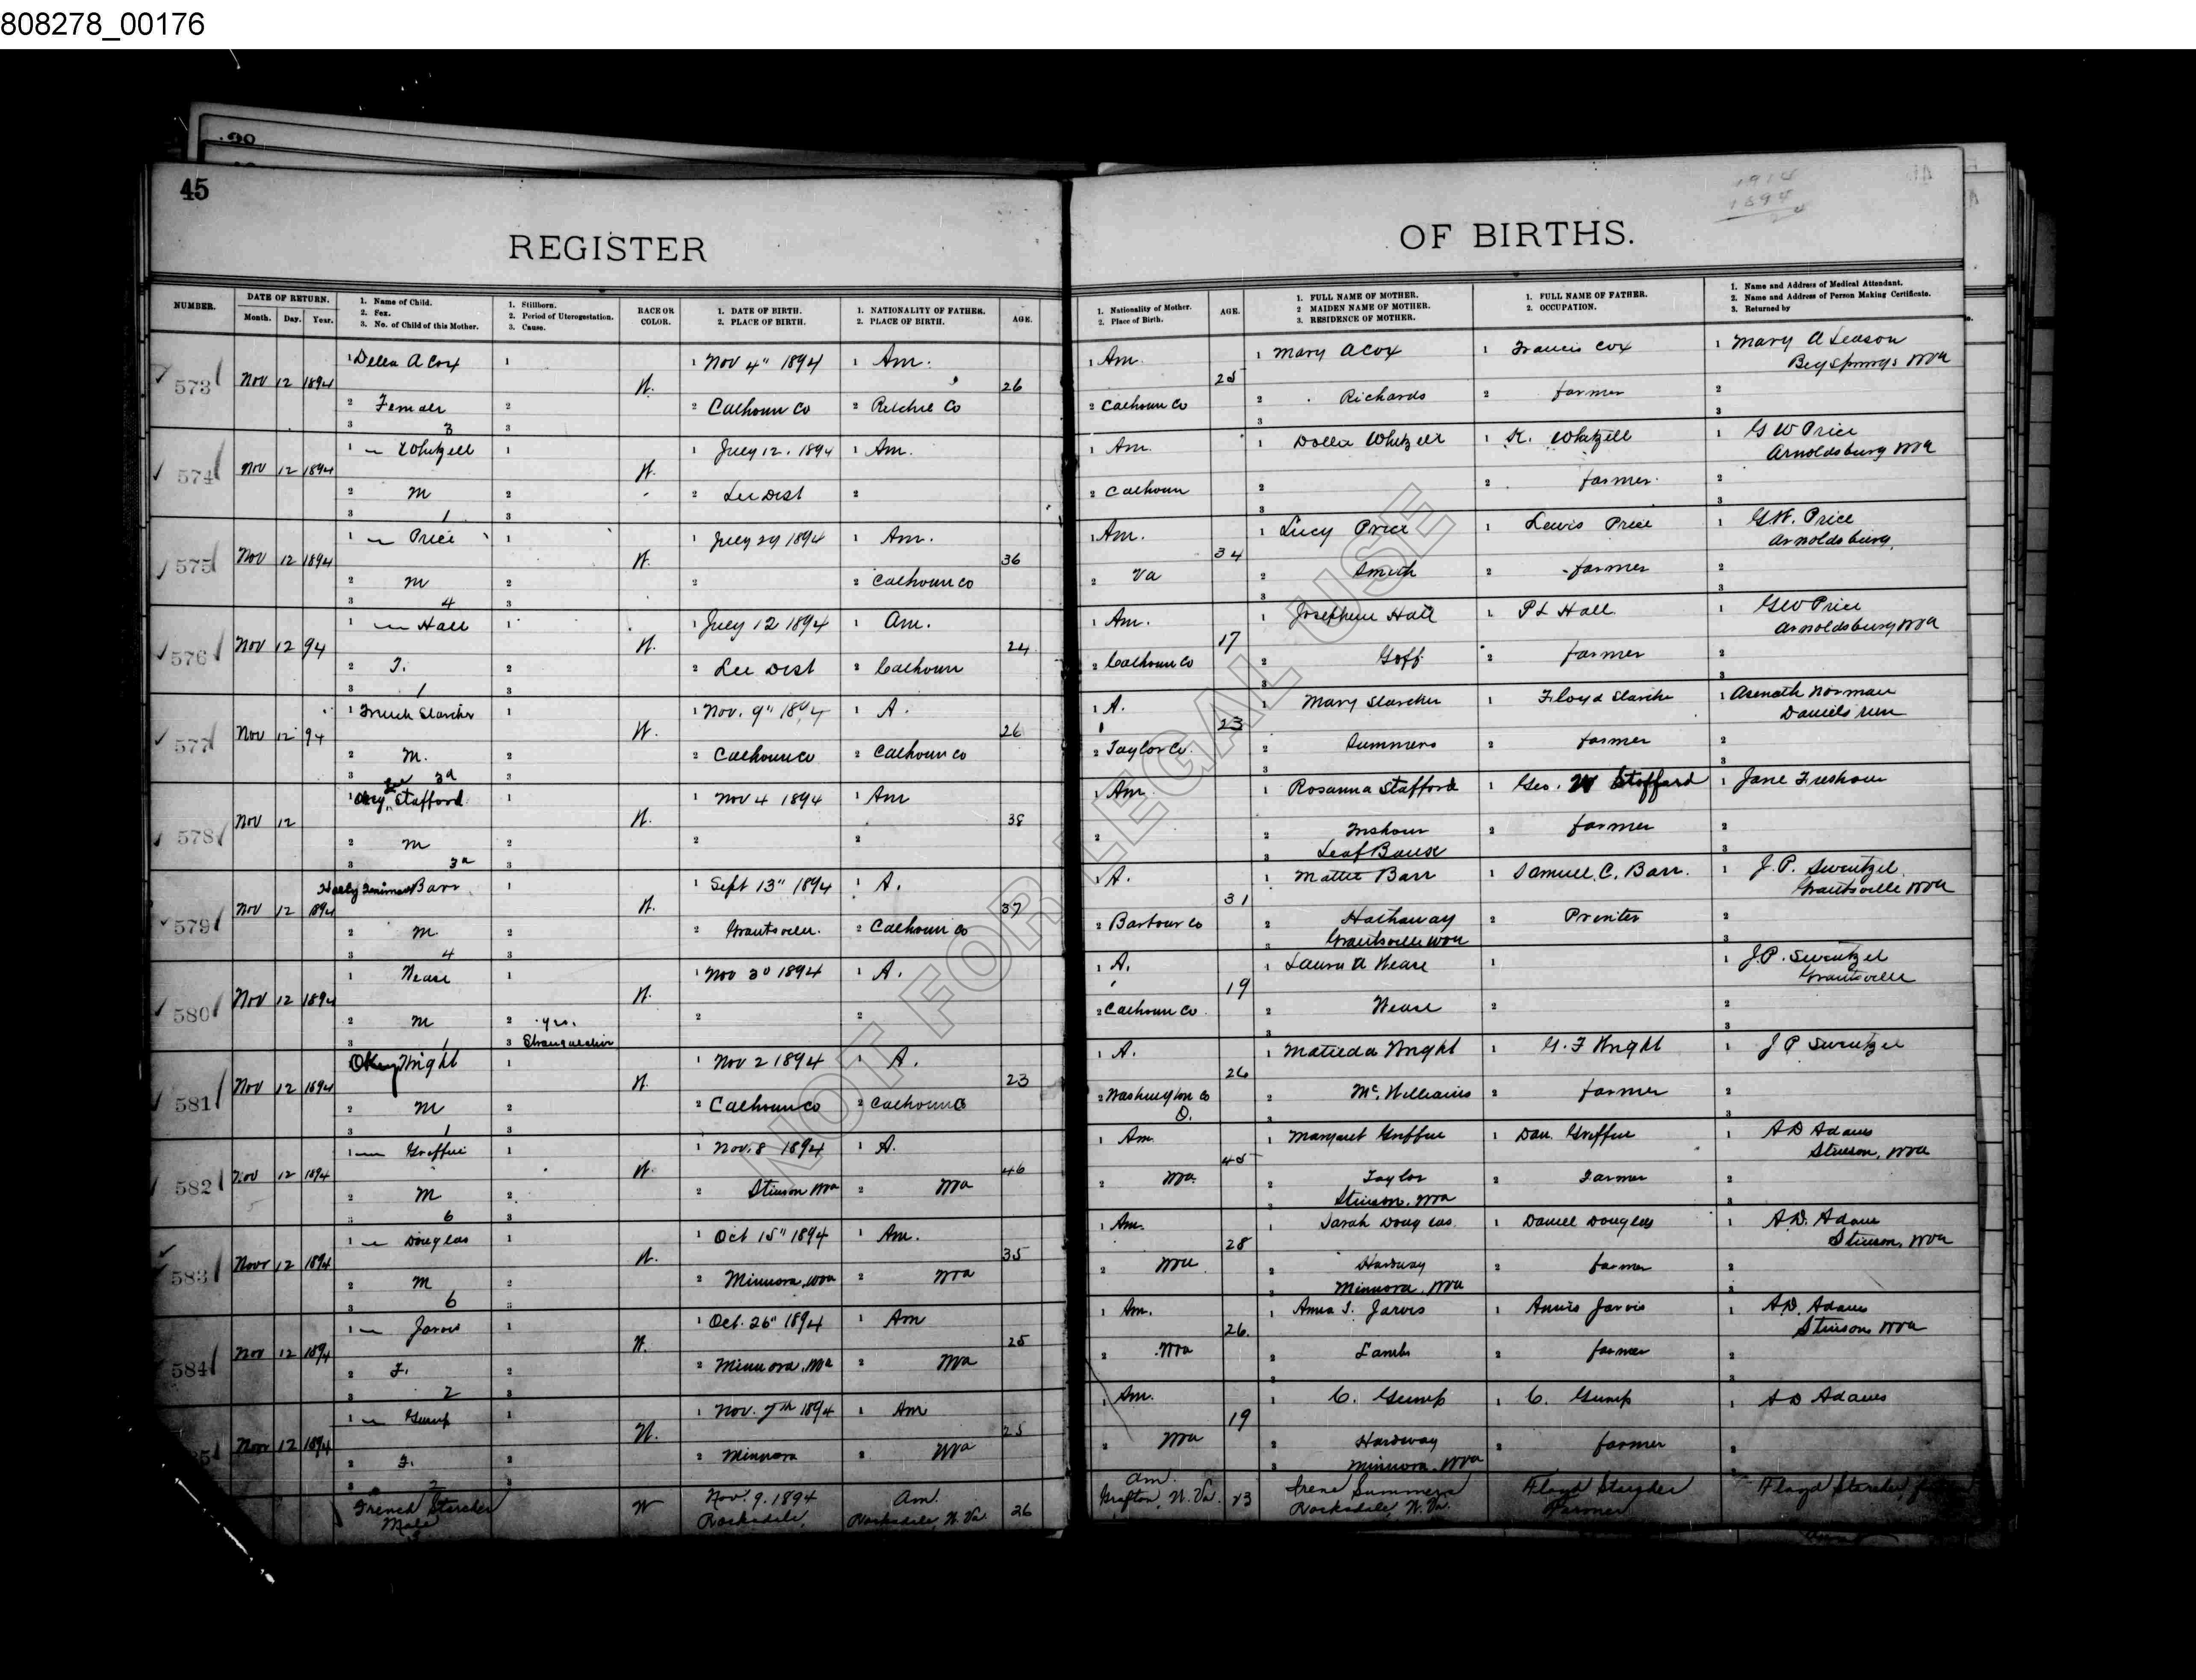 808278_00176
45
REGISTER OF BIRTHS.
1914
1894
NUMBER.
DATE OF RETURN.
Month. Day. Year.
1. Name of Child.
2. Sex.
3. No. of Child of this Mother.
1. Stillborn.
2. Period of Uterogestation.
3. Cause.
RACE OR COLOR.
1. DATE OF BIRTH.
2. PLACE OF BIRTH.
1. NATIONALITY OF FATHER.
2. PLACE OF BIRTH.
AGE.
1. Nationality of Mother.
2. Place of Birth.
AGE.
1. FULL NAME OF MOTHER.
2 MAIDEN NAME OF MOTHER.
3. RESIDENCE OF MOTHER.
1. FULL NAME OF FATHER.
2. OCCUPATION.
1. Name and Address of Medical Attendant.
2. Name and Address of Person Making Certificate.
3. Returned by
573 Nov 12 1894 1 Della A Cox 1 W. 1 Nov 4" 1894 1 Am. 26 1 Am 25 1 Mary A Cox 1 Francis Cox 1 Mary A
Big Springs WVa
2 Female 2 2 Calhoun Co 2 Ritchie Co 2 Calhoun Co 2 Richards 2 farmer 2
3 3 3 3 3
574 Nov 12 1894 1 Whitzell 1 W. 1 July 12. 1894 1 Am. 1 Am. 1 Whitzell 1 Whitzell 1 G W Price
Arnoldsburg WVa
2 M 2 2 Lee Dist 2 2 Calhoun 2 2 farmer 2
3 1 3 3 3
575 Nov 12 1894 1 Price 1 W. 1 July 29 1894 1 Am. 36 1 Am. 34 1 Lucy Price 1 Lewis Price 1 G.W. Price
Arnoldsburg.
2 M 2 2 2 Calhoun Co 2 Va 2 Smith 2 farmer 2
3 4 3 3 3
576 Nov 12 94 1 Hall 1 W. 1 July 12 1894 1 Am. 24 1 Am. 17 1 Josephine Hall 1 P L Hall 1 G W Price
Arnoldsburg WVa
2 F. 2 2 Lee Dist 2 Calhoun 2 Calhoun Co 2 Goff 2 farmer 2
3 1 3 3 3
577 Nov 12 94 1 Starcher 1 W. 1 Nov. 9" 1894 1 A. 26 1 A. 23 1 Mary Starcher 1 Floyd 1 Asenath Norman
Daniels run
2 M. 2 2 Calhoun Co 2 Calhoun Co 2 Taylor Co. 2 Summers 2 farmer 2
3 3d 3 3 3
578 Nov 12 1 Stafford 1 W. 1 Nov 4 1894 1 Am 38 1 Am 1 Rosanna Stafford 1 Geo. W Stafford 1 Jane Freshour
2 M 2 2 2 2 2 2 farmer 2
3 3d 3 3 Leaf Bank 3
579 Nov 12 1894 Barr 1 W. 1 Sept 13" 1894 1 A. 37 1 A. 31 1 Mattie Barr 1 Samuel C. Barr. 1 J.P. Swentzel
Grantsville WVa
2 M. 2 2 Grantsville. 2 Calhoun Co 2 Barbour Co 2 Hathaway 2 Printer 2
3 4 3 3 Grantsville WVa 3
580 Nov 12 1894 1 Wease 1 W. 1 Nov 3d 1894 1 A. 1 A. 19 1 Laura A Wease 1 1 J.P. Swentzel
Grantsville
2 M 2 yes. 2 2 2 Calhoun Co 2 Wease 2 2
3 1 3 Strangulation 3 3
581 Nov 12 1894 Okey Wright 1 W. 1 Nov 2 1894 1 A. 23 1 A. 26 1 Matilda Wright 1 G. F Wright 1 J P Swentzel
2 M 2 2 Calhoun Co 2 Calhoun Co 2 Washington Co O. 2 McWilliams 2 farmer 2
3 1 3 3 3
582 Nov 12 1894 1 Griffin 1 W. 1 Nov. 8 1894 1 A. 46 1 Am. 45 1 Margaret Griffin 1 Dan. Griffin 1 A D Adams
Stinson, WVa
2 M 2 2 Stinson WVa 2 WVa 2 WVa. 2 Taylor 2 Farmer 2
3 6 3 3 Stinson. WVa 3
583 Nov 12 1894 1 Douglas 1 W. 1 Oct 15" 1894 1 Am. 35 1 Am. 28 1 Sarah Douglas 1 Daniel Douglas 1 A.D. Adams
Stinson, WVa
2 M 2 2 Minnora, WVa 2 WVa 2 WVa 2 Hardway 2 farmer 2
3 6 3 3 Minnora. WVa 3
584 Nov 12 1894 1 Jarvis 1 W. 1 Oct. 26" 1894 1 Am 25 1 Am. 26. 1 Anna Jarvis 1 Jarvis 1 A.D. Adams
Stinson, WVa
2 F. 2 2 Minnora, WVa 2 WVa 2 WVa 2 Lamb 2 farmer 2
3 2 3 3
Nov 12 1894 1 Gump 1 W. 1 Nov. 7th 1894 1 Am 25 1 Am. 19 1 C. Gump 1 C. Gump 1 A D Adams
2 F. 2 2 Minnora 2 WVa 2 WVa 2 Hardway 2 farmer 2
3 2 3 3 Minnora. WVa
French Starcher W Nov. 9. 1894 Am. 26 Am. 23 Irene Summers Floyd Starcher Floyd Starcher
Male Rocksdale, Rocksdale, W. Va. Grafton, W. Va. Rocksdale, W. Va. Farmer
NOT FOR LEGAL USE